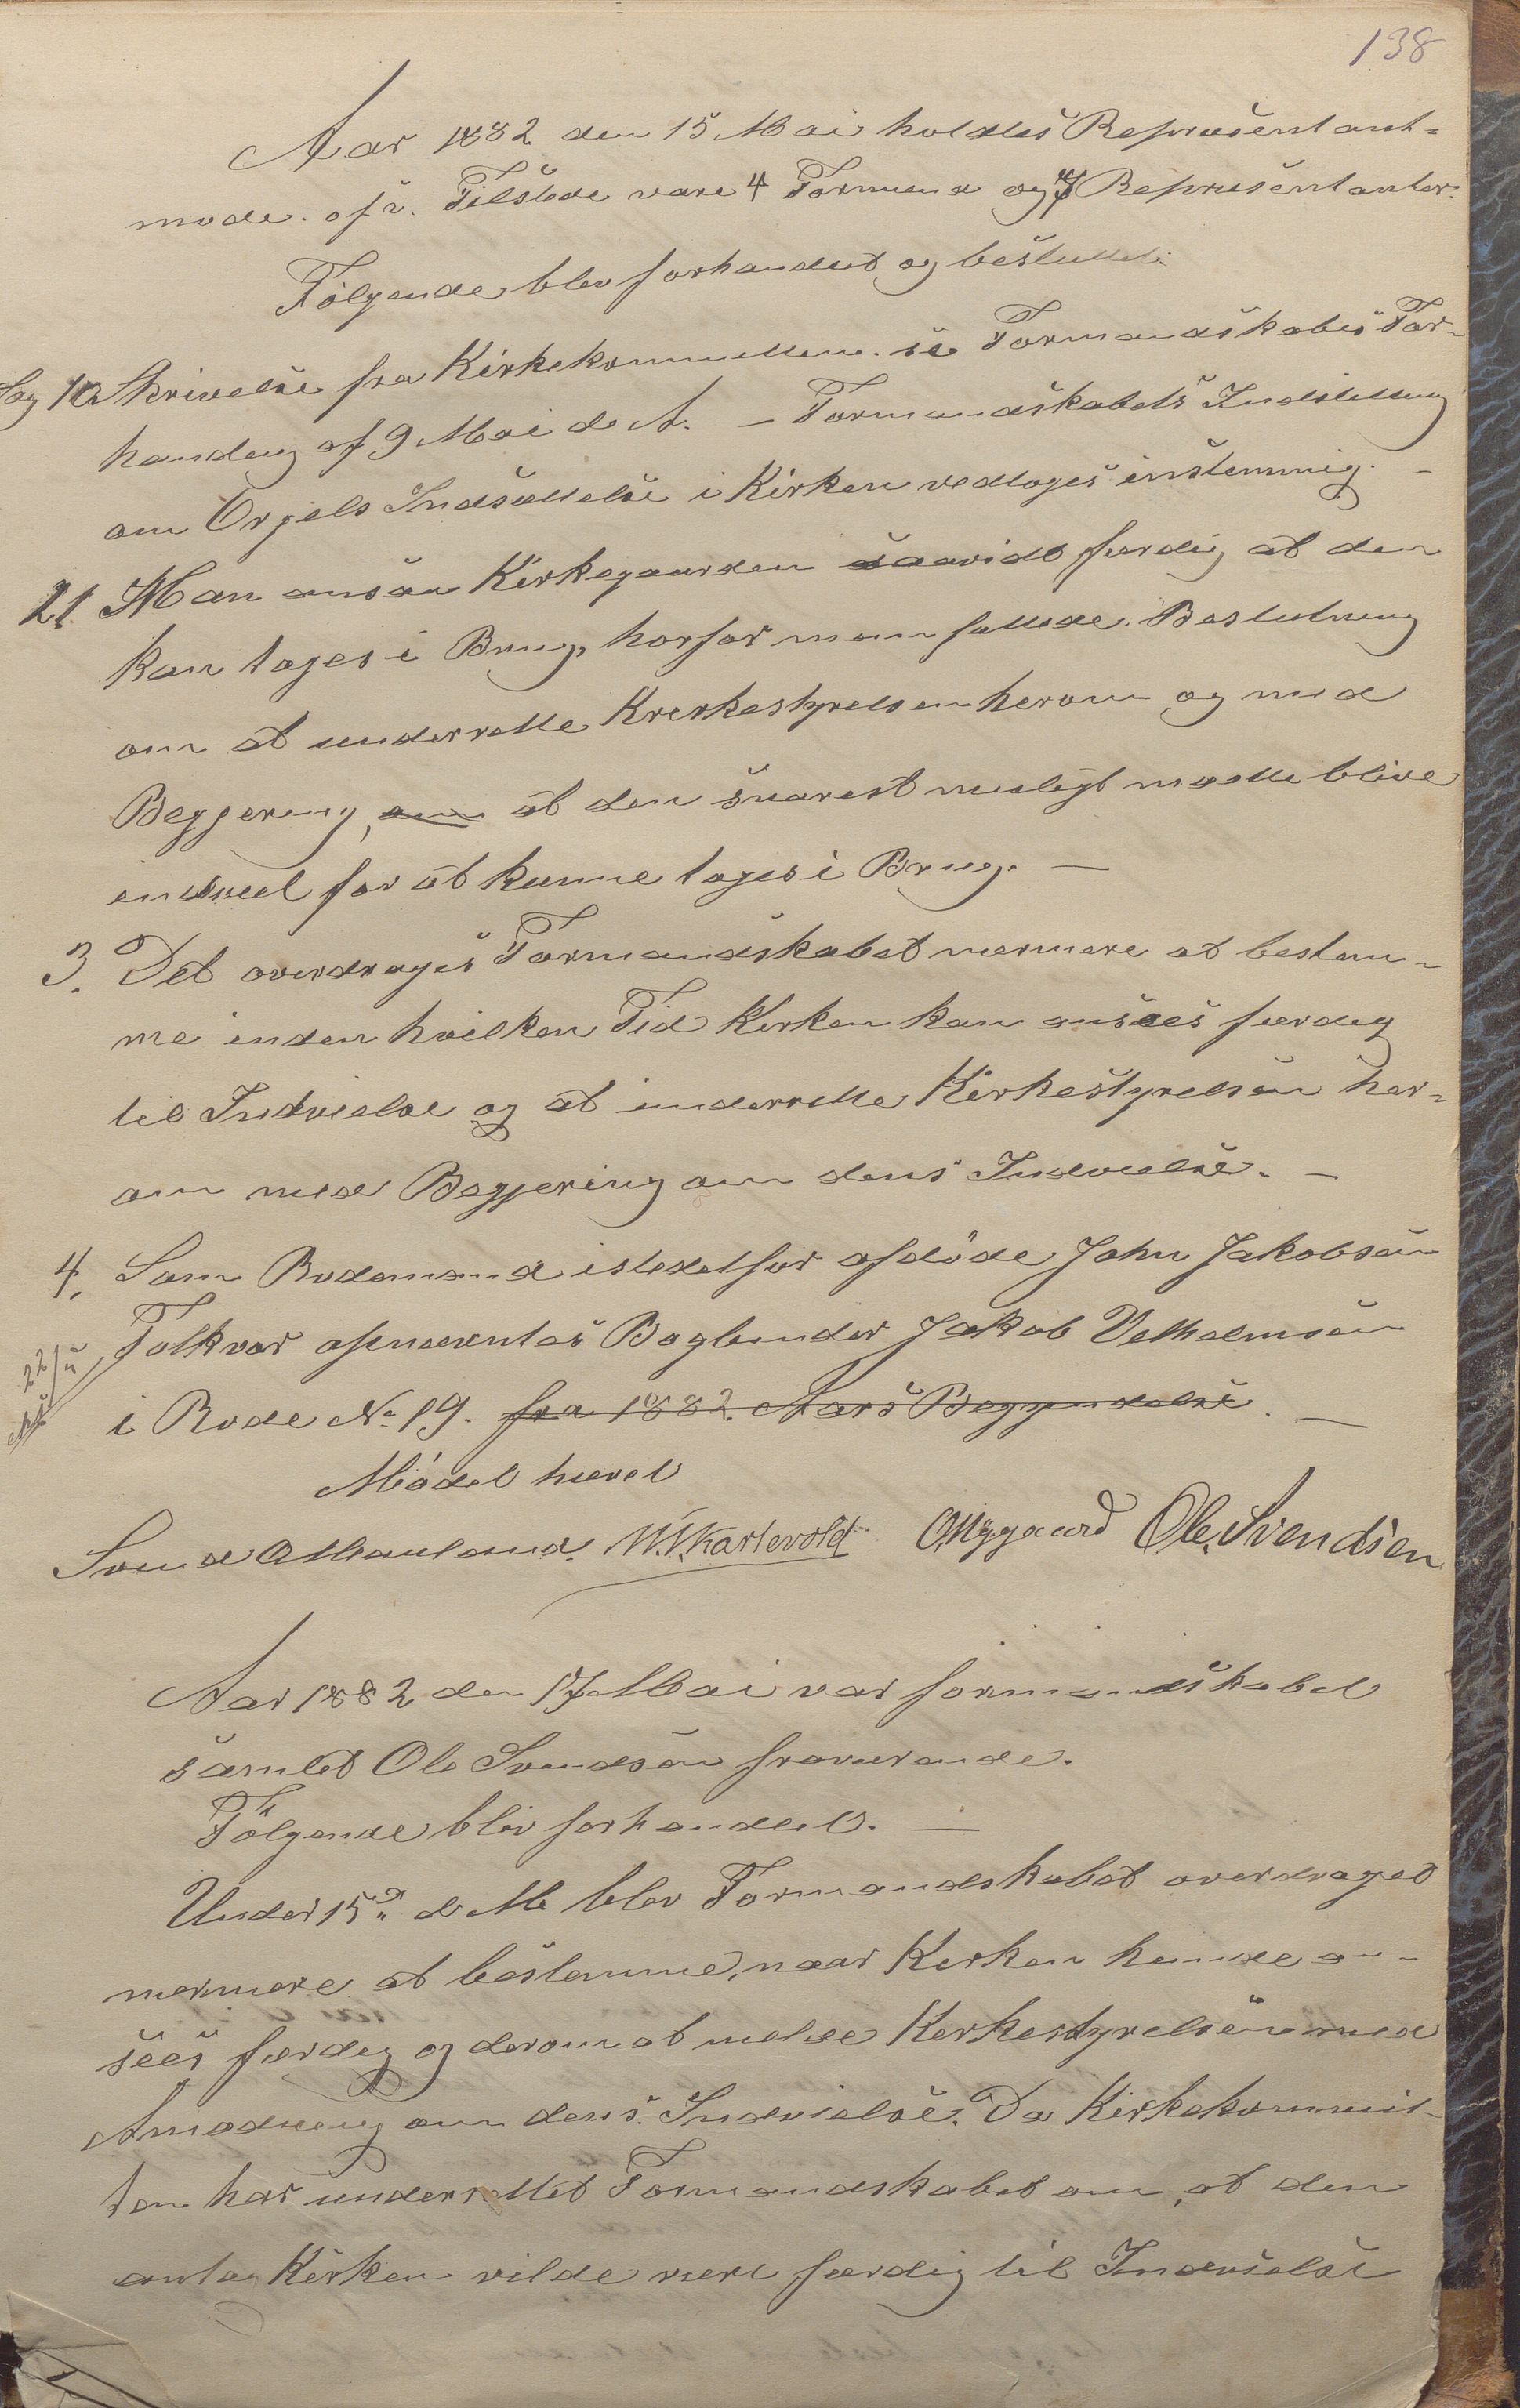 138
Aar 1882 den 15 Mai holdtes Repræsentant-
møde. ofr. Tilstede vare 4 Formænd og 7 Repræsentanter.
Følgende blev forhandlet og besluttet:
Sag 1. Skrivelse fra Kirkekommitteen. se Formandskabes For-
handling af 9 Mai d. A. – Formandskabets Indstilling
om Orgels Indsættelse i Kirken vedtoges enstemmig. –
2. Man ansaa Kirkegaarden saavidt færdig at den
kan tages i Brug, horfor man fattede Beslutning
om at underrette Kirkestyrelsen herom og med
Begjering, om at den snarest muligt maatte blive
indviet for at kunne tages i Brug. –
3. Det overdroges Formandskabet nærmere at bestem-
me inden hvilken Tid Kirken kan ansees færdig
til Indvielse og at underrette Kirkestyrelsen her-
om med Begjering om dens Indvielse. –
4. Som Rodemand istedetfor afdøde John Jakobsen
Tolkvar opnævntes Bogbinder Jakob Velhelmsen
22/5
i Rode No 19. fra 1882 Aars Begyndelse. –
Mødet hævet
Svend Aáland. W. S. Kartevold O. Nygaard Ole Svendsen
Aar 1882 den 17 Mai var formandskabet
samlet Ole Svendsen fraværende.
Følgende blev forhandlet. –
Under 15de d. M. blev Formandskabet overdraget
nærmere at bestemme, naar Kirken kunde an-
sees færdig og derom at melde Kirkestyrelsen med
Anmodning om dens Indvielse. Da Kirkekommit-
ten har underrettet Formandskabet om, at den
antog Kirken vilde være færdig til Indvielse